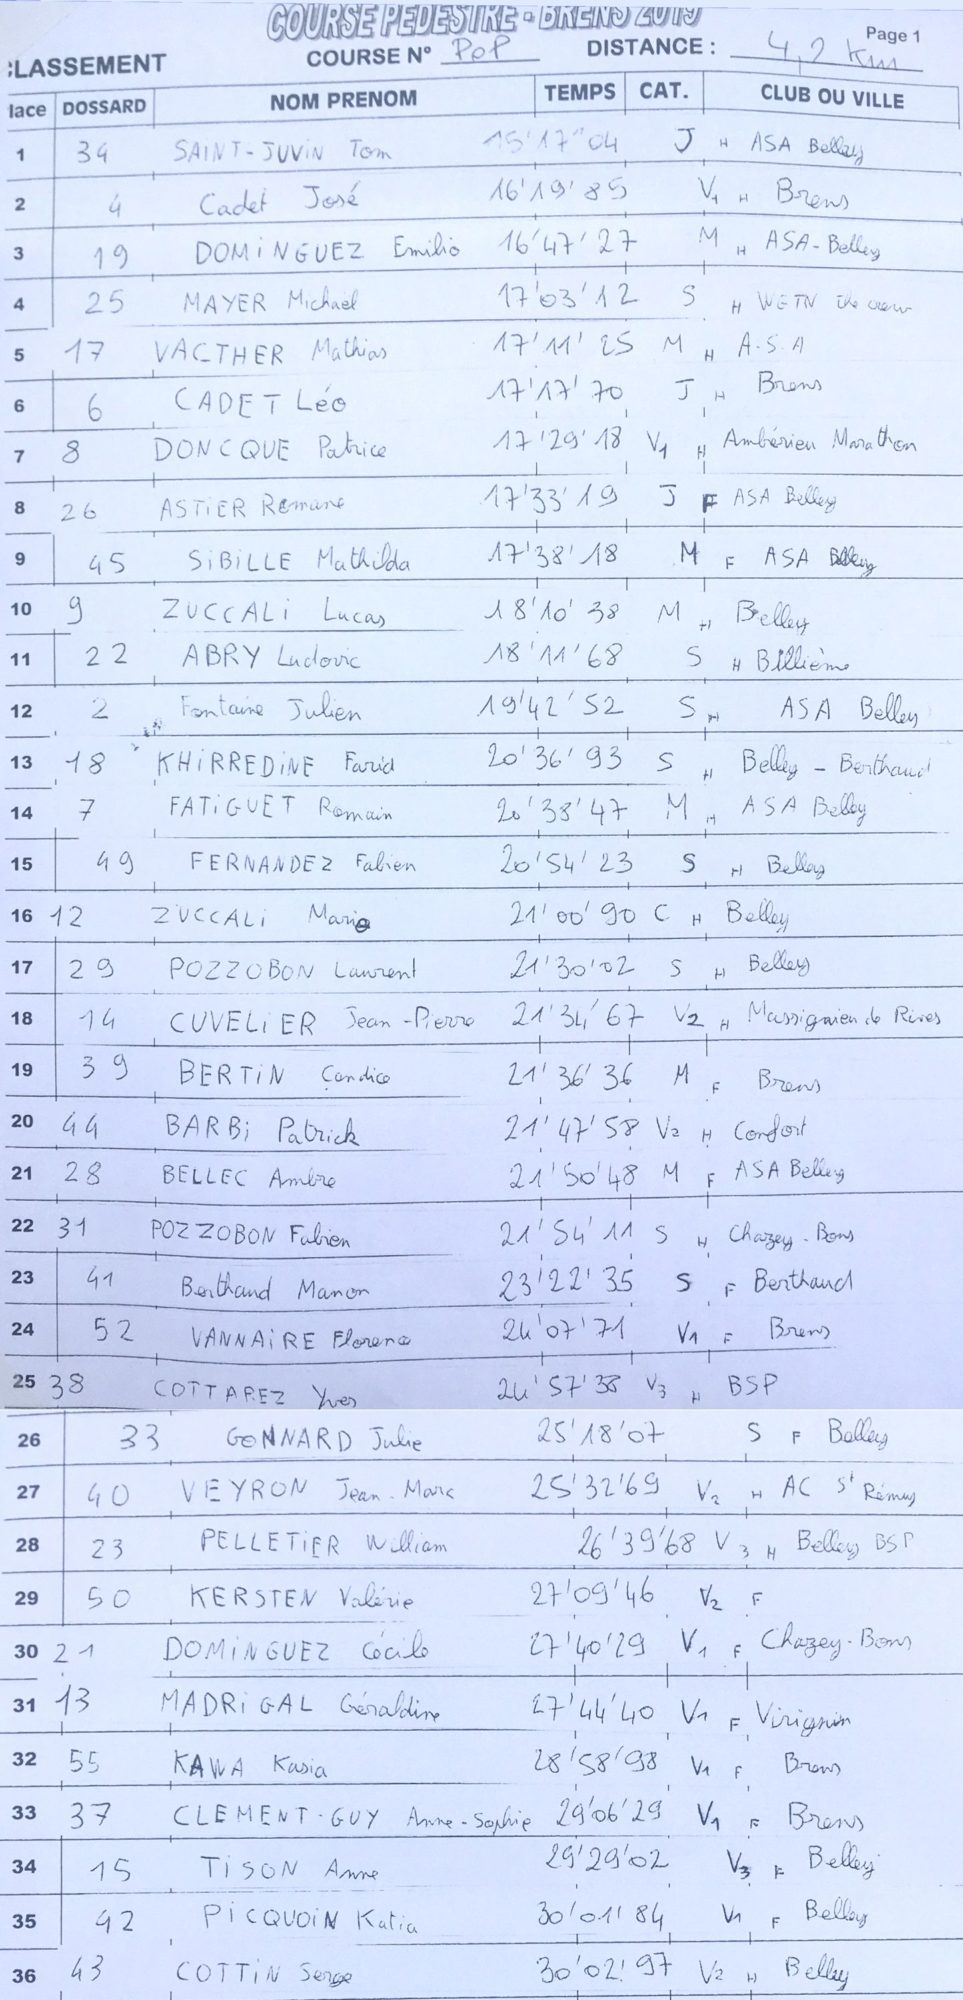 COURSE PEDESTRE - BRENS 2019
Page 1
:LASSEMENT COURSE N° POP DISTANCE : 4,2 Km
lace DOSSARD NOM PRENOM TEMPS CAT. CLUB OU VILLE
1 34 SAINT-JUVIN Tom 15'17"04 J H ASA Belley
2 4 Cadet José 16'19'85 V1 H Brens
3 19 DOMINGUEZ Emilio 16'47'27 M H ASA-Belley
4 25 MAYER Michael 17'03'12 S H
5 17 VACTHER Mathias 17'11'25 M H A.S.A
6 6 CADET Léo 17'17'70 J H Brens
7 8 DONCQUE Patrice 17'29'18 V1 H Ambérieu Marathon
8 26 ASTIER Romane 17'33'19 J F ASA Belley
9 45 SIBILLE Mathilda 17'38'18 M F ASA Belley
10 9 ZUCCALI Lucas 18'10'38 M H Belley
11 22 ABRY Ludovic 18'11'68 S H Billième
12 2 Fontaine Julien 19'42'52 S H ASA Belley
13 18 KHIRREDINE Farid 20'36'93 S H Belley - Berthaud
14 7 FATIGUET Romain 20'38'47 M H ASA Belley
15 49 FERNANDEZ Fabien 20'54'23 S H Belley
16 12 ZUCCALI Mario 21'00'90 C H Belley
17 29 POZZOBON Laurent 21'30'02 S H Belley
18 14 CUVELIER Jean-Pierre 21'34'67 V2 H Massignieu de Rives
19 39 BERTIN Candice 21'36'36 M F Brens
20 44 BARBI Patrick 21'47'58 V2 H Confort
21 28 BELLEC Ambre 21'50'48 M F ASA Belley
22 31 POZZOBON Fabien 21'54'11 S H Chazey-Bons
23 41 Berthaud Manon 23'22'35 S F Berthaud
24 52 VANNAIRE Florence 24'07'71 V1 F Brens
25 38 COTTAREZ Yves 24'57'38 V3 H BSP
26 33 GONNARD Julie 25'18'07 S F Belley
27 40 VEYRON Jean-Marc 25'32'69 V2 H AC St Rémy
28 23 PELLETIER William 26'39'68 V3 H Belley BSP
29 50 KERSTEN Valérie 27'09'46 V2 F
30 21 DOMINGUEZ Cécile 27'40'29 V1 F Chazey-Bons
31 13 MADRIGAL Géraldine 27'44'40 V1 F Virignin
32 55 KAWA Kasia 28'58'98 V1 F Brens
33 37 CLEMENT-GUY Anne-Sophie 29'06'29 V1 F Brens
34 15 TISON Anne 29'29'02 V3 F Belley
35 42 PICQUOIN Katia 30'01'84 V1 F Belley
36 43 COTTIN Serge 30'02'97 V2 H Belley